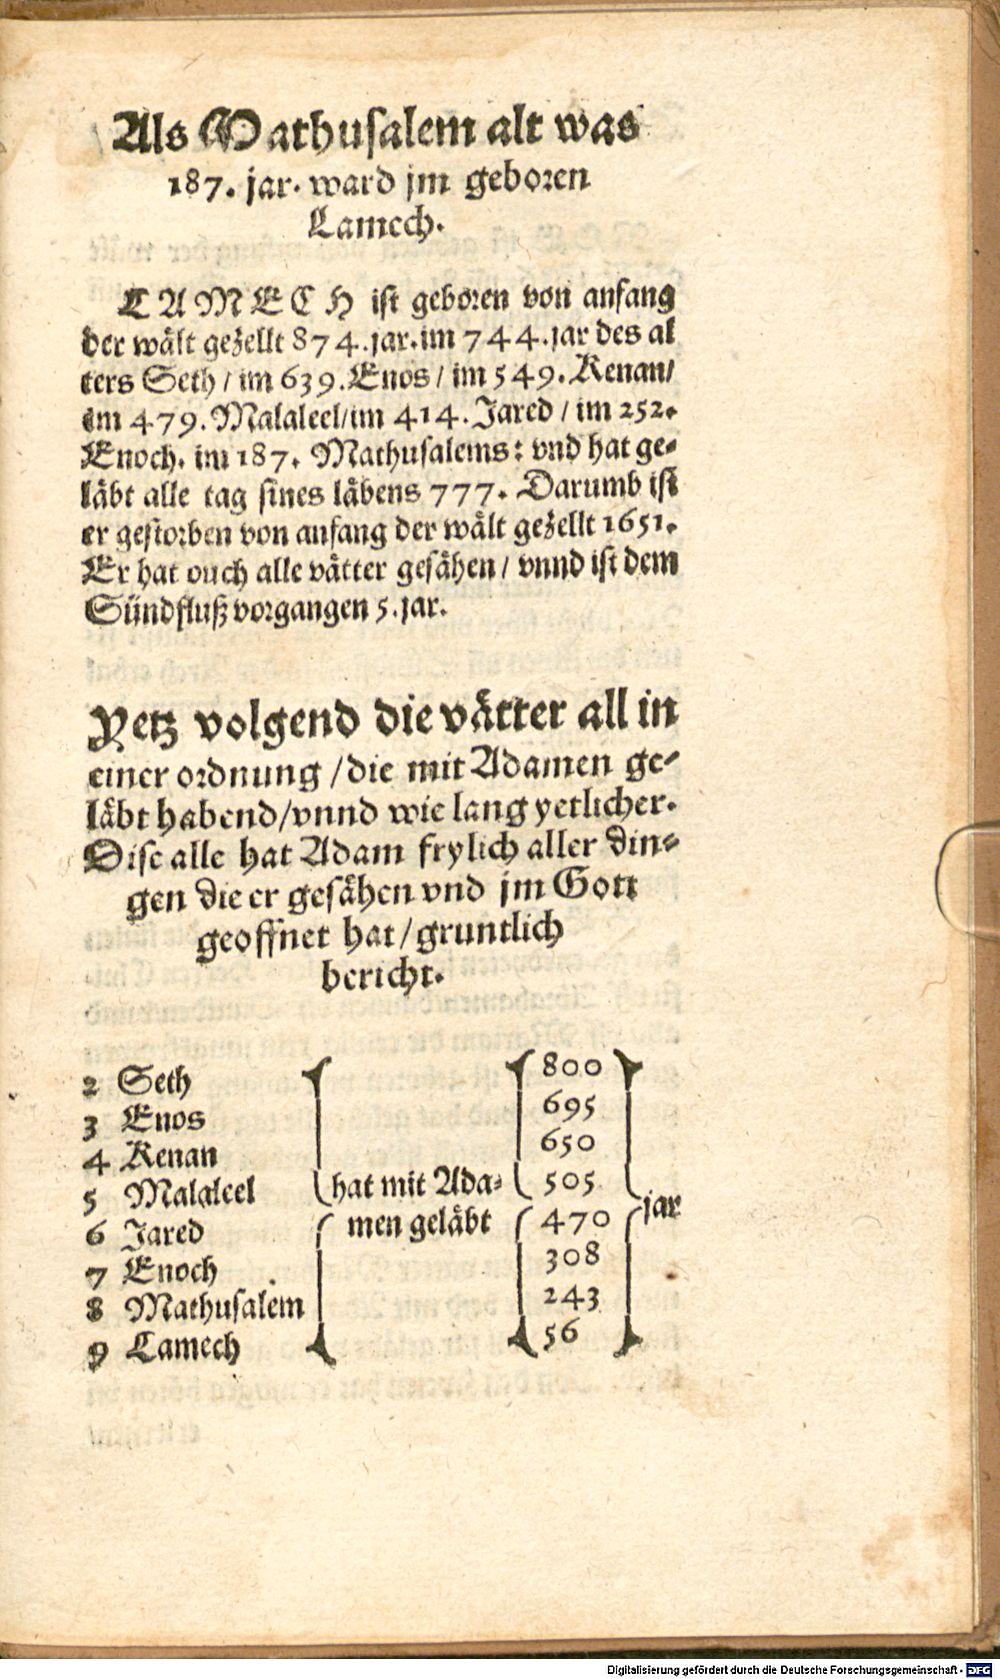 Als Mathusalem alt was
187. jar. ward jm geboren
Lamech.
LAMECH ist geboren von anfang
der wält gezellt 874.jar.im 744.jar des al
ters Seth / im 639.Enos / im 549.Kenan/
im 479.Malaleel/im 414.Jared / im 252.
Enoch. im 187. Mathusalems: vnd hat ge-
läbt alle tag sines läbens 777. Darumb ist
er gestorben von anfang der wält gezellt 1651.
Er hat ouch alle vätter gesähen / vnnd ist dem
Sündfluß vorgangen 5.jar.
Yetz volgend die vätter all in
einer ordnung /die mit Adamen ge-
läbt habend/vnnd wie lang yetlicher.
Dise alle hat Adam frylich aller din-
gen die er gesähen vnd jm Gott
geoffnet hat/gruntlich
bericht.
2 Seth 800
3 Enos 695
4 Kenan 650
5 Malaleel hat mit Ada- 505 jar
6 Jared men geläbt 470
7 Enoch 308
8 Mathusalem 243
9 Lamech 56
Digitalisierung gefördert durch die Deutsche Forschungsgemeinschaft - DFG